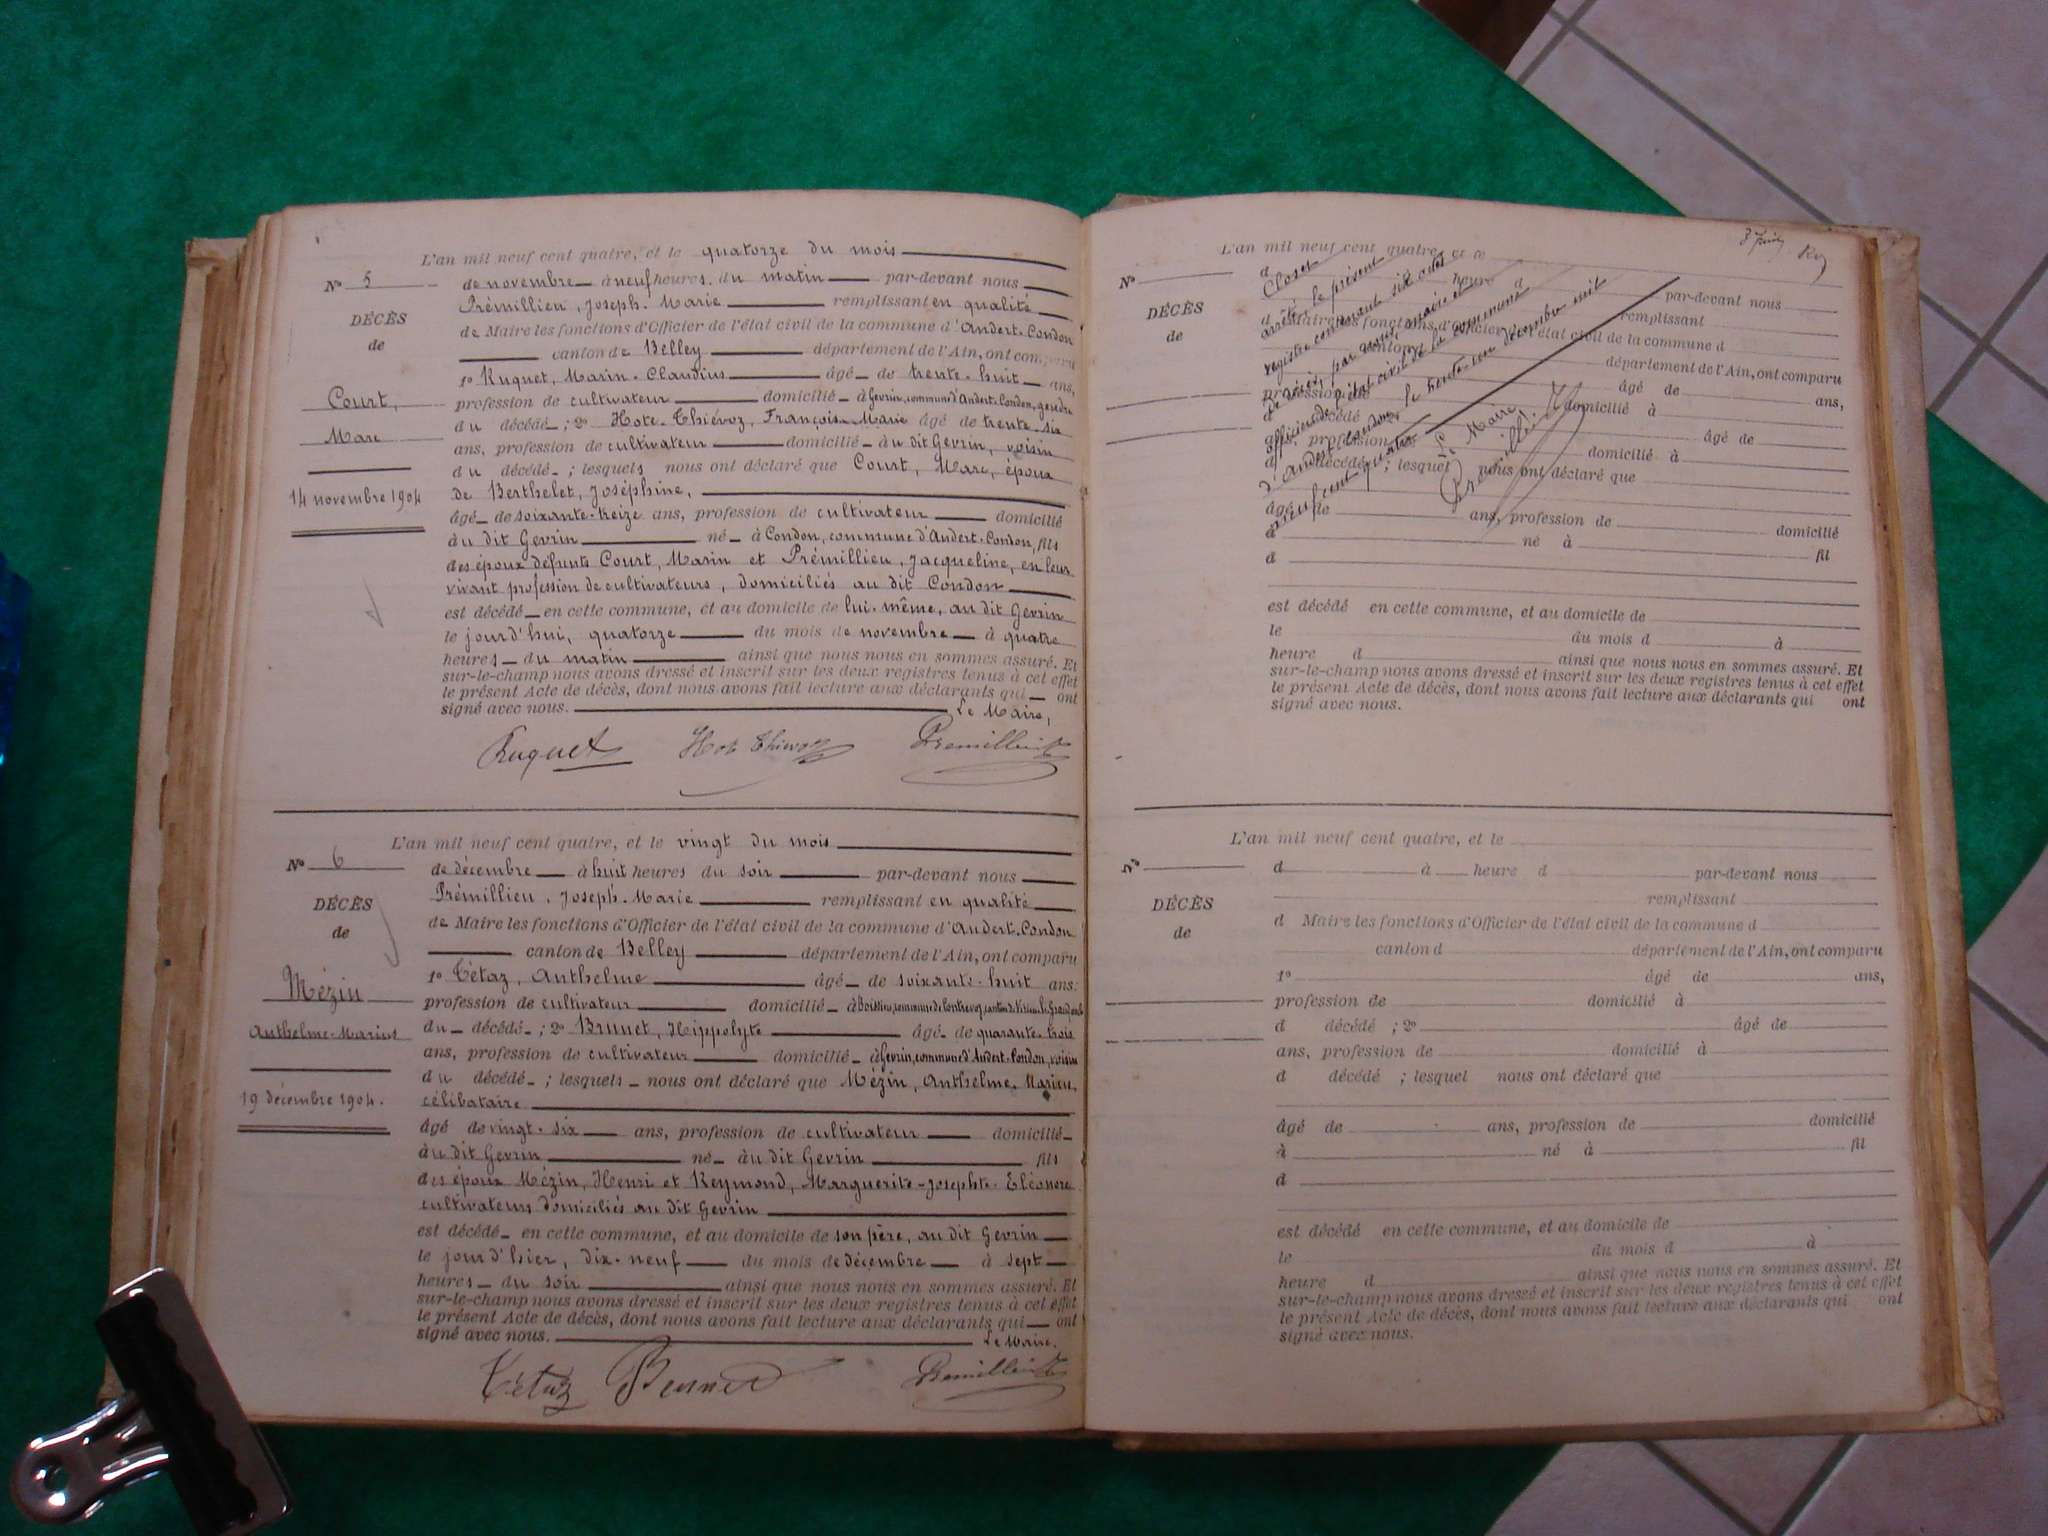 L'an mil neuf cent quatre, et le quatorze du mois
N° 5
de novembre à neuf heures du matin par-devant nous
Prémillieu, Joseph-Marie remplissant en qualité
DÉCÈS
de
de Maire les fonctions d'Officier de l'état civil de la commune d'Andert-Condon
canton de Belley département de l'Ain, ont comparu
1° Ruguet, Marin-Claudius âgé de trente-huit ans,
Court,
profession de cultivateur domicilié à Gevrin, commune d'Andert-Condon, gendre
Marc
du décédé ; 2° Hote-Thiévoz, François-Marie âgé de trente-six
ans, profession de cultivateur domicilié au dit Gevrin, voisin
du décédé ; lesquels nous ont déclaré que Court, Marc, époux
14 novembre 1904
de Berthelet, Joséphine,
âgé de soixante-treize ans, profession de cultivateur domicilié
au dit Gevrin né à Condon, commune d'Andert-Condon, fils
des époux défunts Court, Marin et Prémillieu, Jacqueline, en leur
vivant profession de cultivateurs, domiciliés au dit Condon
est décédé en cette commune, et au domicile de lui-même, au dit Gevrin
le jourd'hui, quatorze du mois de novembre à quatre
heures du matin ainsi que nous nous en sommes assuré. Et
sur-le-champ nous avons dressé et inscrit sur les deux registres tenus à cet effet
le présent Acte de décès, dont nous avons fait lecture aux déclarants qui ont
signé avec nous. Le Maire,
Ruguet Hote Thievoz Premillieu
L'an mil neuf cent quatre, et le vingt du mois
N° 6
de décembre à huit heures du soir par-devant nous
Prémillieu, Joseph-Marie remplissant en qualité
DÉCÈS
de
de Maire les fonctions d'Officier de l'état civil de la commune d'Andert-Condon
canton de Belley département de l'Ain, ont comparu
1° Tétaz, Anthelme âgé de soixante-huit ans.
Mézin
profession de cultivateur domicilié à commune de Contrevoz, canton de
Anthelme-Marius
du décédé ; 2° Brunet, Hippolyte âgé de quarante-trois
ans, profession de cultivateur domicilié à Gevrin, commune d'Andert-Condon, voisin
du décédé ; lesquels nous ont déclaré que Mézin, Anthelme-Marius,
19 décembre 1904.
célibataire
âgé de vingt-six ans, profession de cultivateur domicilié
au dit Gevrin né au dit Gevrin fils
des époux Mézin, Henri et Reymond, Marguerite-Josephte-Eléonore
cultivateurs domiciliés au dit Gevrin
est décédé en cette commune, et au domicile de son père, au dit Gevrin
le jour d'hier, dix-neuf du mois de décembre à sept
heures du soir ainsi que nous nous en sommes assuré. Et
sur-le-champ nous avons dressé et inscrit sur les deux registres tenus à cet effet
le présent Acte de décès, dont nous avons fait lecture aux déclarants qui ont
signé avec nous. Le Maire.
Tétaz Brunet Premillieu
L'an mil neuf cent quatre, et le
N°
d heure d par-devant nous
remplissant
DÉCÈS
de
d Maire les fonctions d'Officier de l'état civil de la commune d
canton d département de l'Ain, ont comparu
âgé de ans,
profession domicilié à
d décédé âgé de
profession domicilié à
d décédé ; lesquel nous ont déclaré que
âgé de ans, profession de domicilié
à né à fil
d
est décédé en cette commune, et au domicile de
le du mois d à
heure d ainsi que nous nous en sommes assuré. Et
sur-le-champ nous avons dressé et inscrit sur les deux registres tenus à cet effet
le présent Acte de décès, dont nous avons fait lecture aux déclarants qui ont
signé avec nous.
Clos et
arrêté le présent
registre contenant six actes
de décès, par nous, maire
officier de l'état civil de la commune
d'Andert-Condon, le trente-un décembre mil
neuf cent quatre
Le Maire,
Premillieu
L'an mil neuf cent quatre, et le
N°
d à heure d par-devant nous
remplissant
DÉCÈS
de
d Maire les fonctions d'Officier de l'état civil de la commune d
canton d département de l'Ain, ont comparu
1° âgé de ans,
profession de domicilié à
d décédé ; 2° âgé de
ans, profession de domicilié à
d décédé ; lesquel nous ont déclaré que
âgé de ans, profession de domicilié
à né à fil
d
est décédé en cette commune, et au domicile de
le du mois d à
heure d ainsi que nous nous en sommes assuré. Et
sur-le-champ nous avons dressé et inscrit sur les deux registres tenus à cet effet
le présent Acte de décès, dont nous avons fait lecture aux déclarants qui ont
signé avec nous.